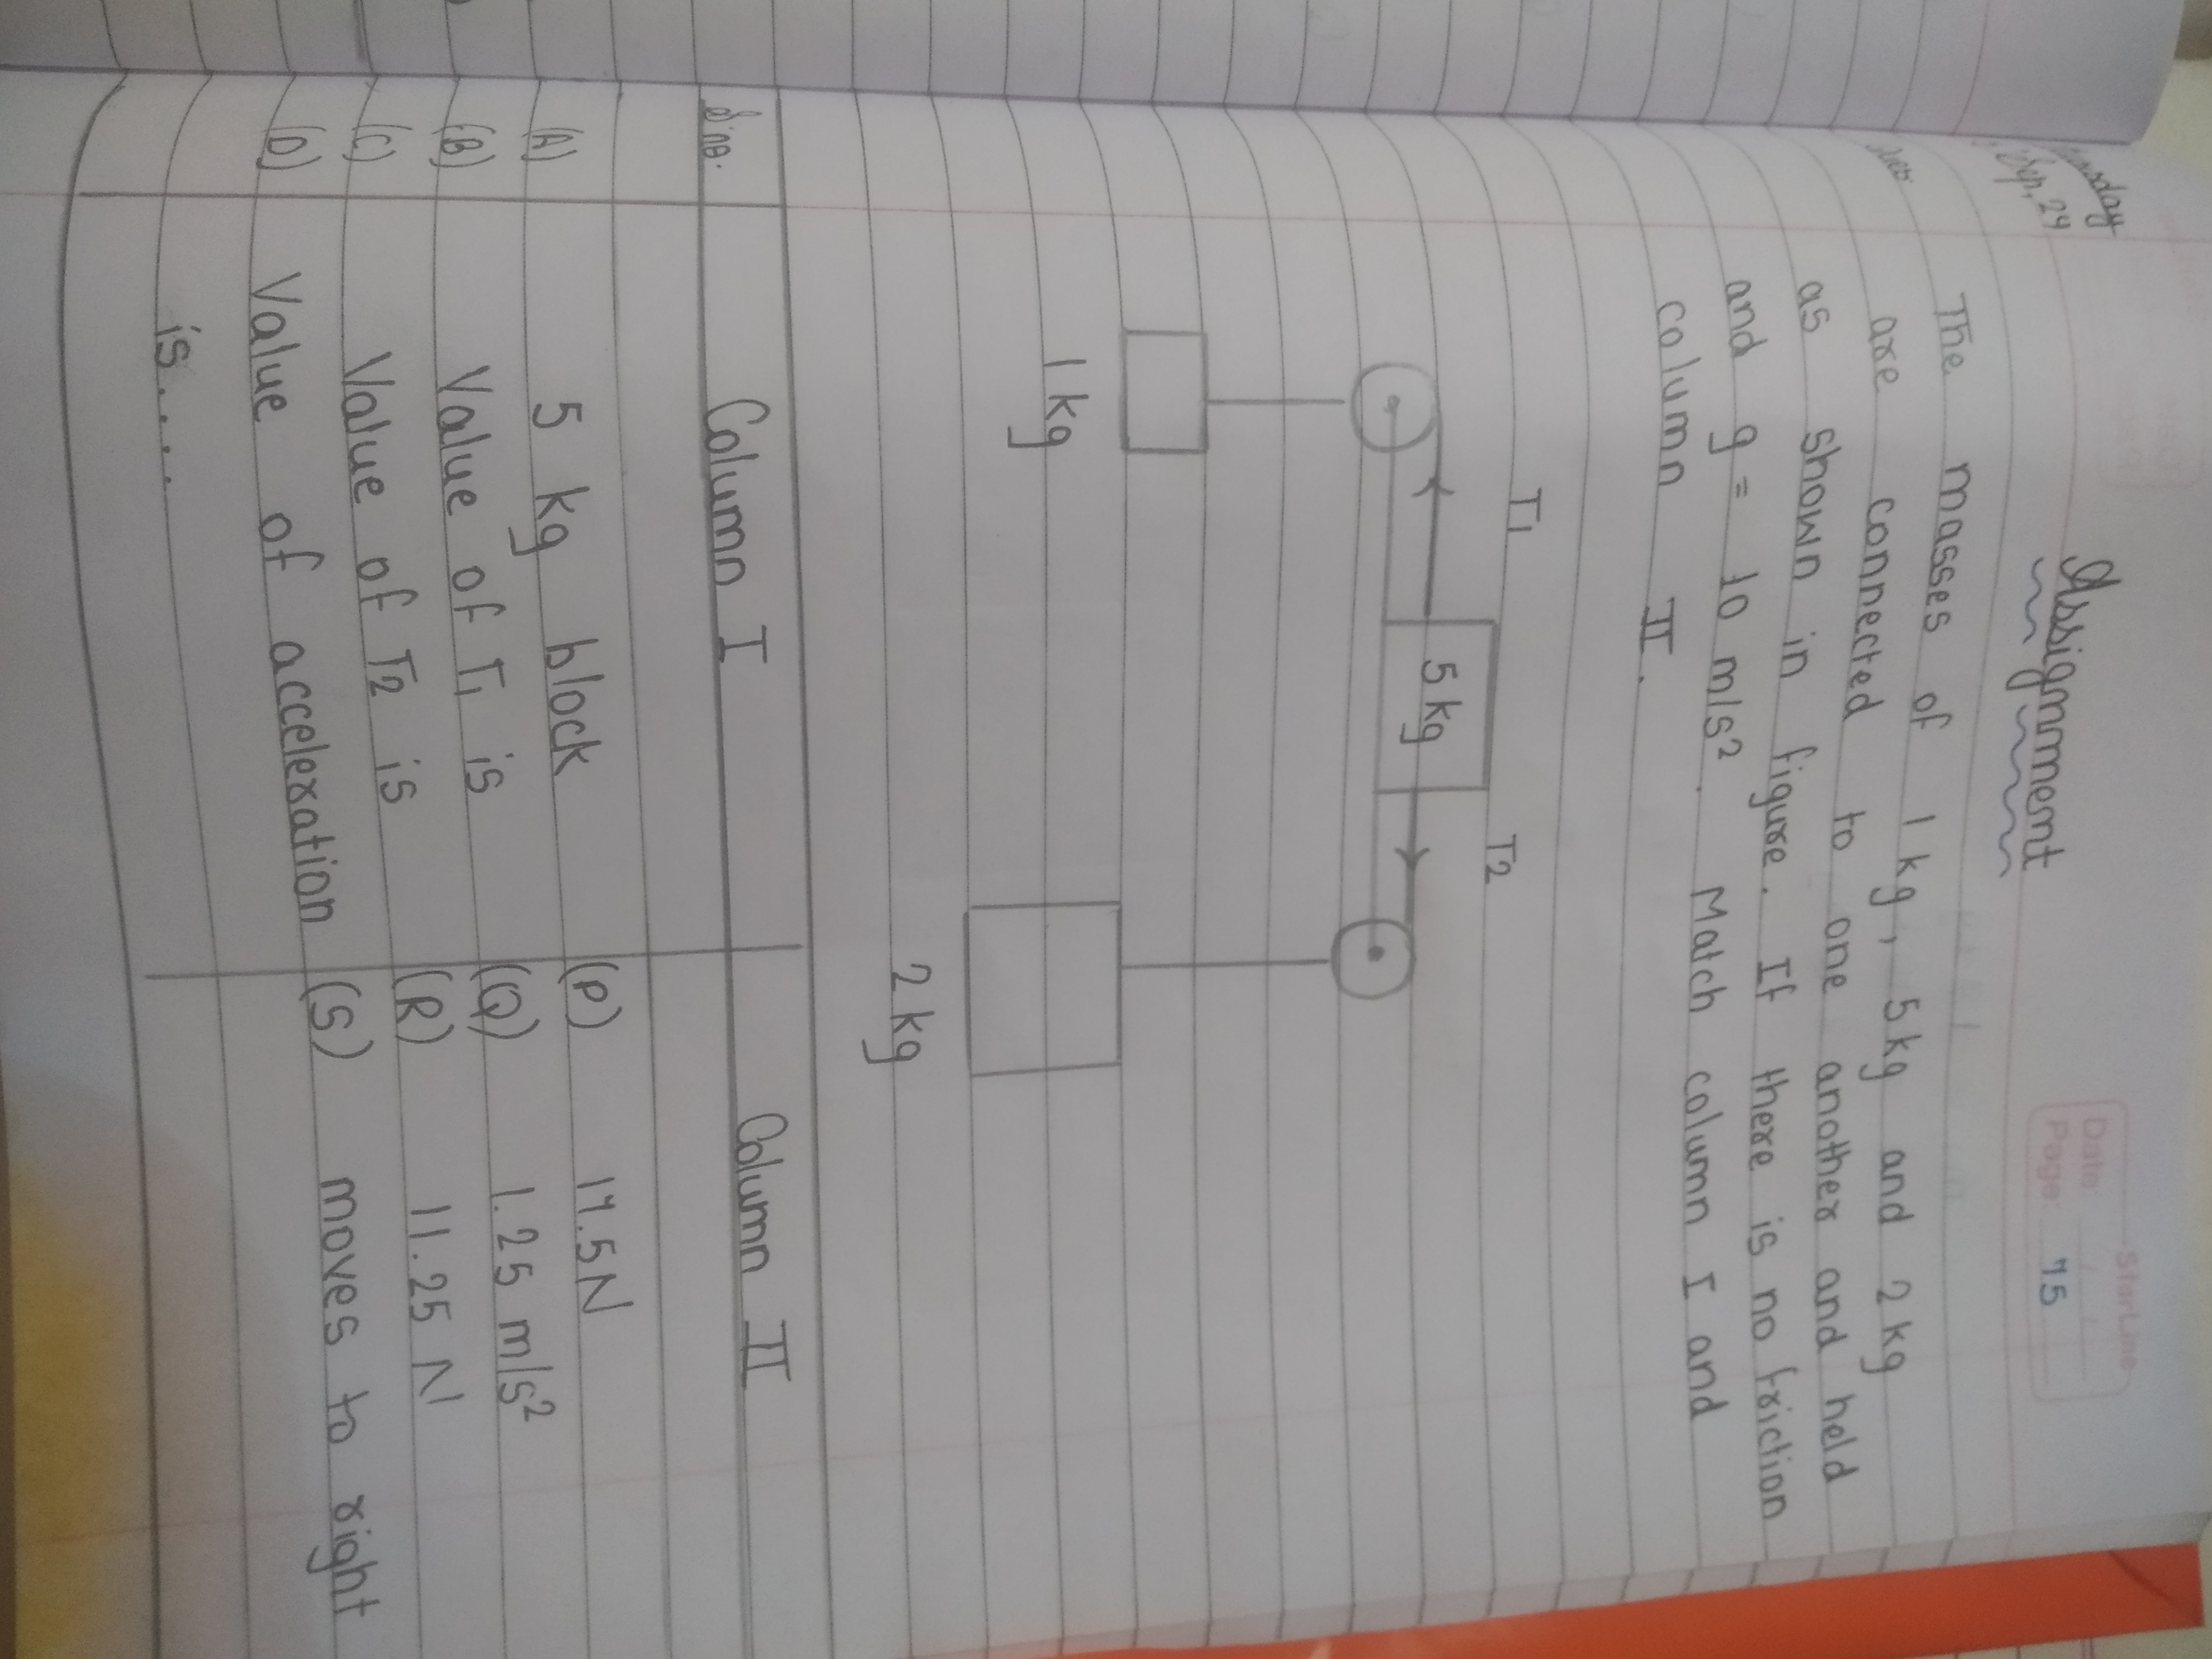 Assignment
StarLine
Date: / /
Page: 75
Sep, 24
The masses of 1 kg, 5kg and 2 kg
are connected to one another and held
as shown in figure. If there is no friction
and g = 10 m/s². Match column I and
column II.
T1 T2
5 kg
1 kg
2 kg
S.no. Column I Column II
(A) 5 kg block (P) 17.5N
(B) Value of T1 is (Q) 1.25 m/s²
(C) Value of T2 is (R) 11.25 N
(D) Value of acceleration (S) moves to right
is.....